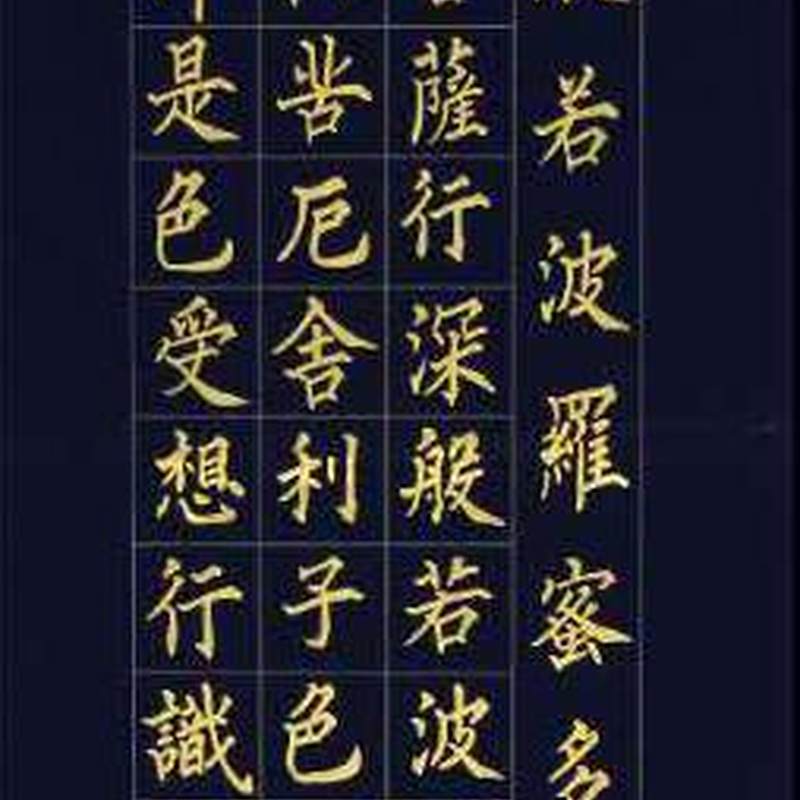 若波羅蜜多
薩行深般若波
苦厄舍利子色
是色受想行識